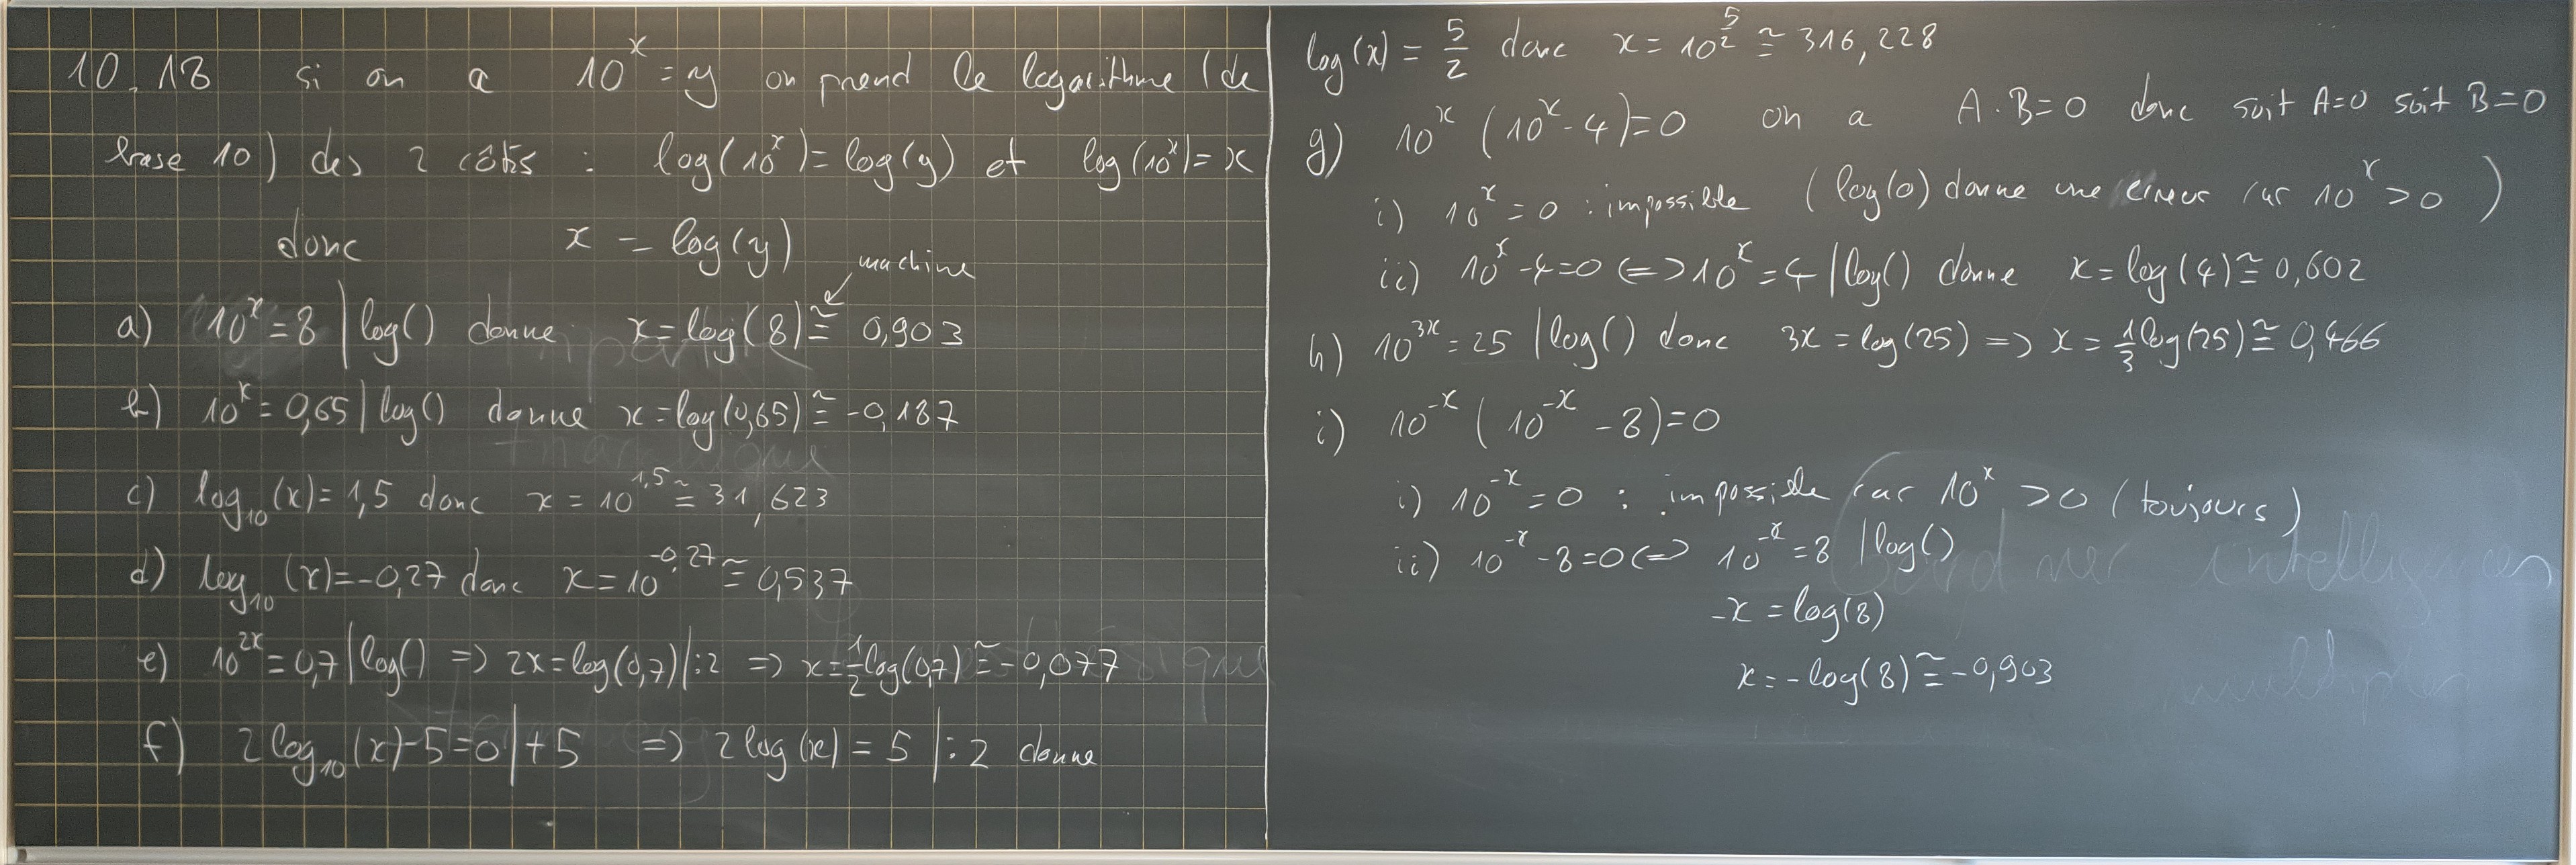 10.18 si on a 10^x = y on prend le logarithme (de
base 10) des 2 côtés : log(10^x) = log(y) et log(10^x) = x
donc x = log(y)
machine
a) 10^x = 8 | log() donne x = log(8) ≅ 0,903
b) 10^x = 0,65 | log() donne x = log(0,65) ≅ -0,187
c) log₁₀(x) = 1,5 donc x = 10^1,5 ≅ 31,623
d) log₁₀(x) = -0,27 donc x = 10^-0,27 ≅ 0,537
e) 10^2x = 0,7 | log() => 2x = log(0,7) | :2 => x = 1/2 log(0,7) ≅ -0,077
f) 2 log₁₀(x) - 5 = 0 | +5 => 2 log(x) = 5 | :2 donne
log(x) = 5/2 donc x = 10^5/2 ≅ 316,228
g) 10^x (10^x - 4) = 0 on a A·B=0 donc soit A=0 soit B=0
i) 10^x = 0 : impossible (log(0) donne une erreur car 10^x > 0)
ii) 10^x - 4 = 0 <=> 10^x = 4 | log() donne x = log(4) ≅ 0,602
h) 10^3x = 25 | log() donc 3x = log(25) => x = 1/3 log(25) ≅ 0,466
i) 10^-x (10^-x - 8) = 0
i) 10^-x = 0 : impossible car 10^x > 0 (toujours)
ii) 10^-x - 8 = 0 <=> 10^-x = 8 | log()
-x = log(8)
x = -log(8) ≅ -0,903